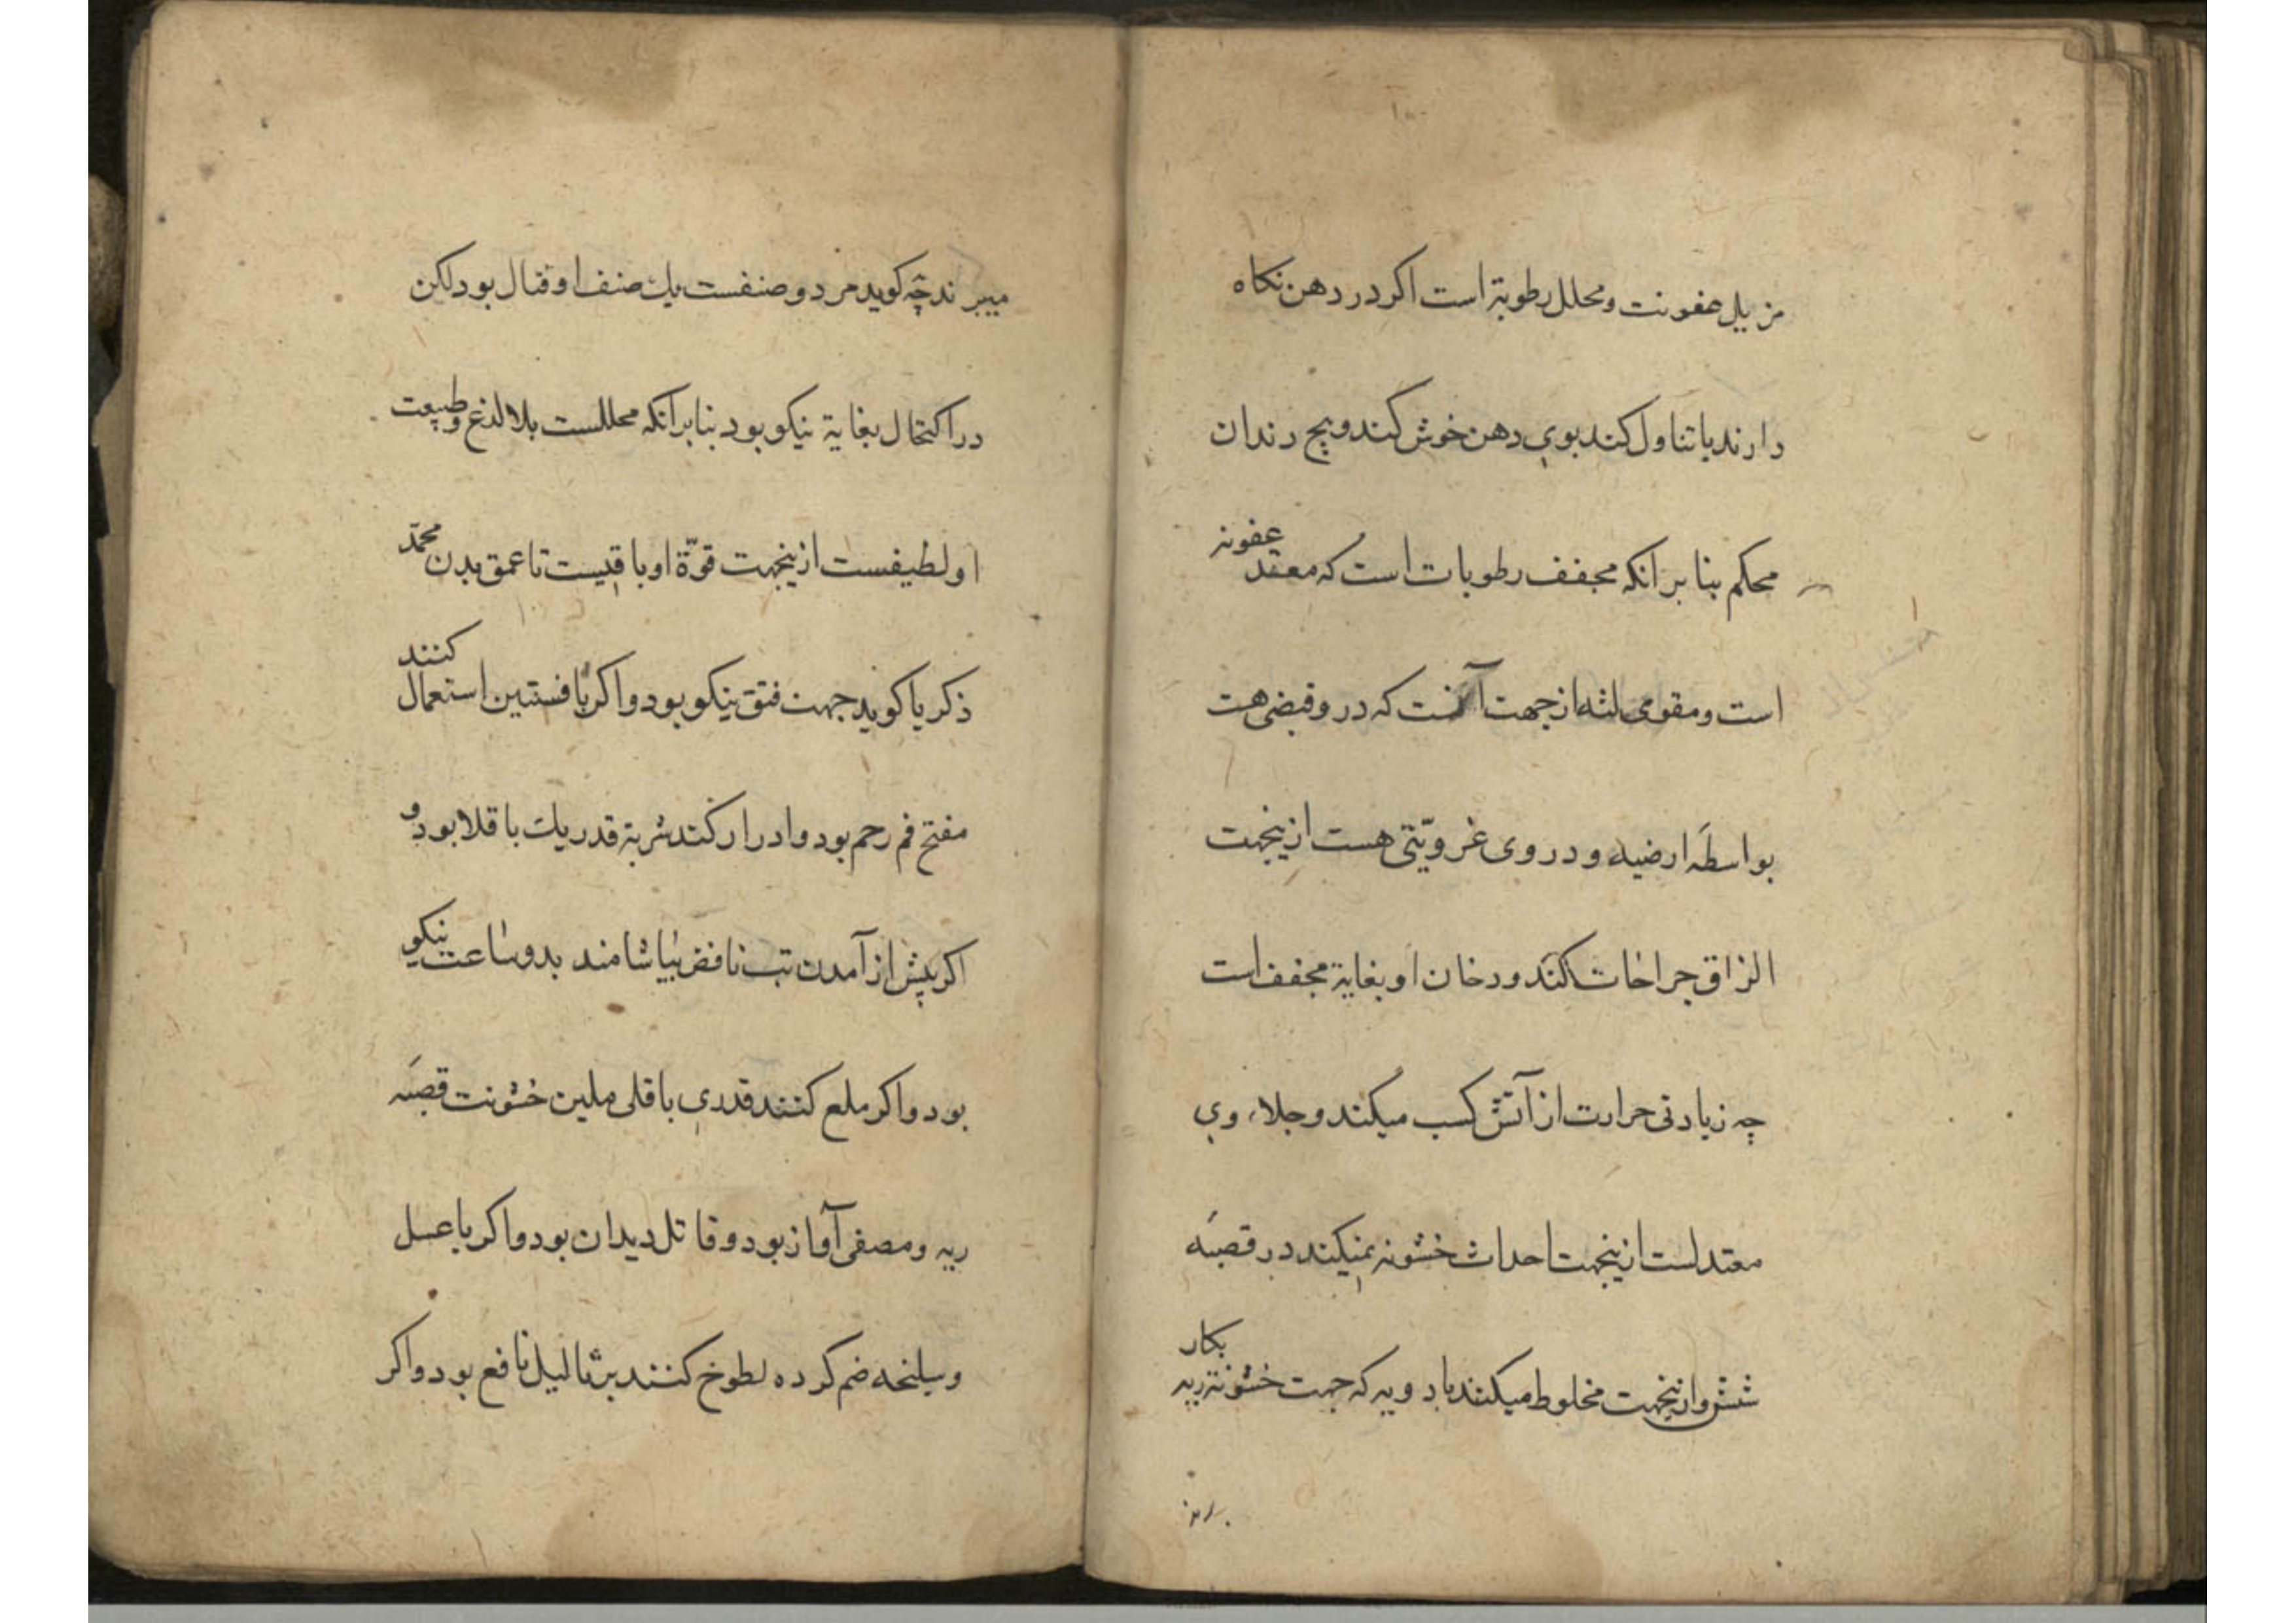 مزیل عفونت و محلل رطوبة است اکر در دهن نکاه
دارند یا تناول کند بوی دهن خوش کند و بیخ دندان
محکم بنا بر انکه مجفف رطوبات است که معقد عفونه
است و مقوی لثه از جهت آنست که در و قبضی هست
بواسطه ارضیه و در وی غرویّتی هست ازینجهت
الزاق جراحات کند و دخان او بغایة مجفف است
چه زیادتی حرارت از آتش کسب میکند و جلاء وی
معتدلست ازینجهت احداث خشونه نمیکند در قصبه
شش و ازینجهت مخلوط میکنند باد ویه که جهت خشونة ریه بکار
میبرند چه کوید مر دو صنفست یک صنف او قتال بود لکن
در اکتحال بغایة نیکو بود بنا بر انکه محللست بلا لذع و طبیعت
او لطیفست ازینجهت قوّة او باقیست تا عمق بدن محمّد
ذکریا کوید جهت فتق نیکو بود و اکر با فسنتین استعمال کنند
مفتح فم رحم بود و ادرار کند شربة قدر یک باقلا بود و
اکر پیش از آمدن تب نافض بیاشامند بدو ساعت نیکو
بود و اکر ملع کنند قدری باقلی ملین خشونت قصبه
ریه و مصفی آواز بود و قاتل دیدان بود و اکر با عسل
و سلیخه ضم کرده لطوخ کنند بر ثالیل نافع بود و اکر